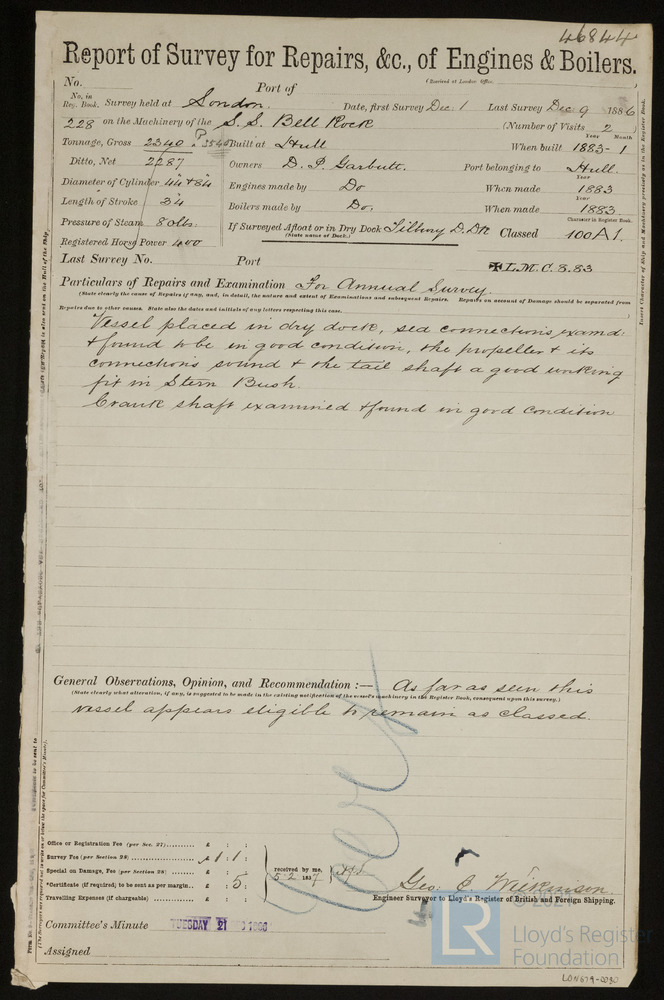 46844
Report of Survey for Repairs, &c., of Engines & Boilers.
(Received at London Office
No.
Port of
No. in Reg. Book. Survey held at London. Date, first Survey Dec. 1 Last Survey Dec 9 1886
228 on the Machinery of the S. S. Bell Rock (Number of Visits 2
Year Month
Tonnage, Gross 2340 Built at Hull When built 1883 - 1
Ditto, Net 2287 Owners D. P. Garbutt. Port belonging to Hull.
Diameter of Cylinder 44 + 84 Engines made by Do When made 1883
Length of Stroke 54 Boilers made by Do. When made 1883
Pressure of Steam 80lbs. If Surveyed Afloat or in Dry Dock Tilbury D. Dk Classed 100A1.
(State name of Dock.)
Character in Register Book.
Registered Horse Power 400
Last Survey No. Port ✠L.M.C. 8.83
Particulars of Repairs and Examination For Annual Survey.
(State clearly the cause of Repairs if any, and, in detail, the nature and extent of Examinations and subsequent Repairs. Repairs on account of Damage should be separated from
Repairs due to other causes. State also the dates and initials of any letters respecting this case.
Vessel placed in dry dock, sea connections examd:
+ found to be in good condition, the propeller + its
connections sound + the tail shaft a good working
fit in Stern Bush.
Crank shaft examined + found in good condition
General Observations, Opinion, and Recommendation :— As far as seen this
(State clearly what alteration, if any, is suggested to be made in the existing notification of the vessel's machinery in the Register Book, consequent upon this survey.)
vessel appears eligible to remain as classed.
Office or Registration Fee (per Sec. 27).......... £ : :
Survey Fee (per Section 28) .................. £ 1 : 1 :
Special on Damage, Fee (per Section 28) £ : :
*Certificate (if required; to be sent as per margin.. £ : 5 :
Travelling Expenses (if chargeable) ............... £ : :
received by me,
5-2 1887
Geo. C. Wilkinson
Engineer Surveyor to Lloyd's Register of British and Foreign Shipping.
Committee's Minute TUESDAY 21
Assigned
LR
© 2021
Lloyd's Register
Foundation
LON679-0030